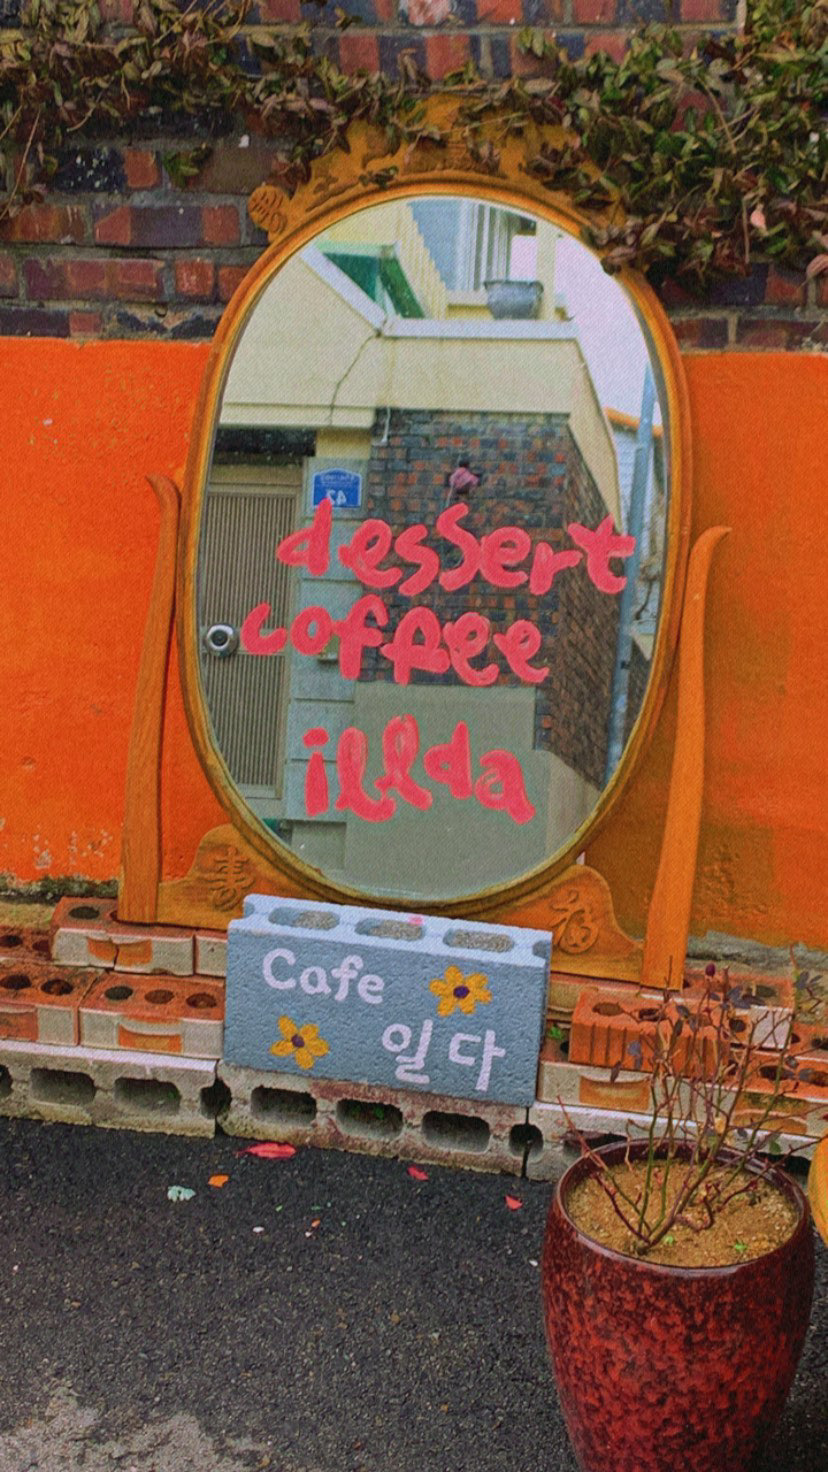 dessert
coffee
illda
Cafe
일다